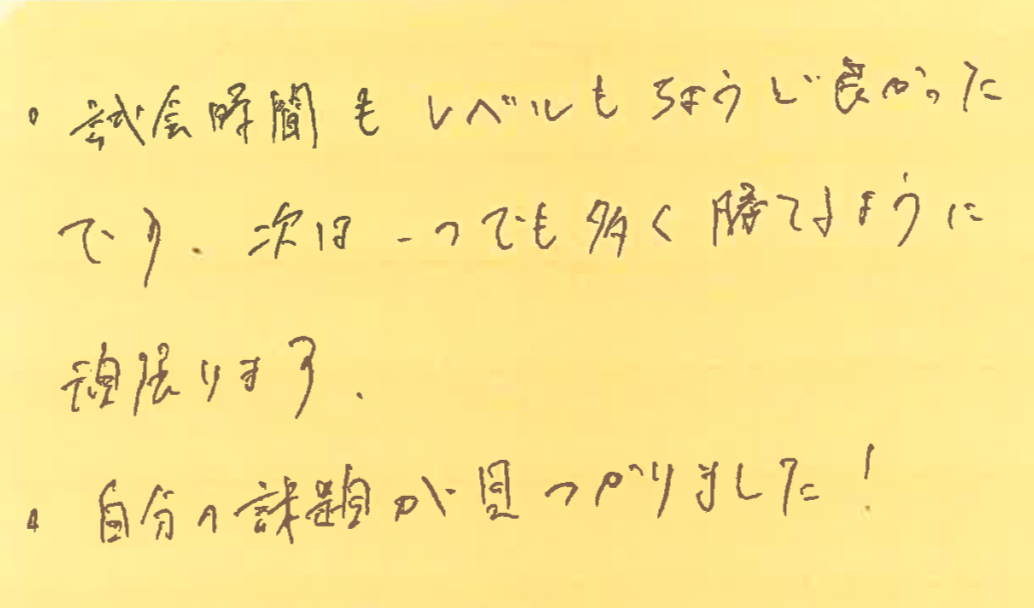 ・試合時間も レベルも ちょうど良かった
です. 次は 一つでも多く 勝てますように
頑張ります.
・自分の課題が見つかりました!